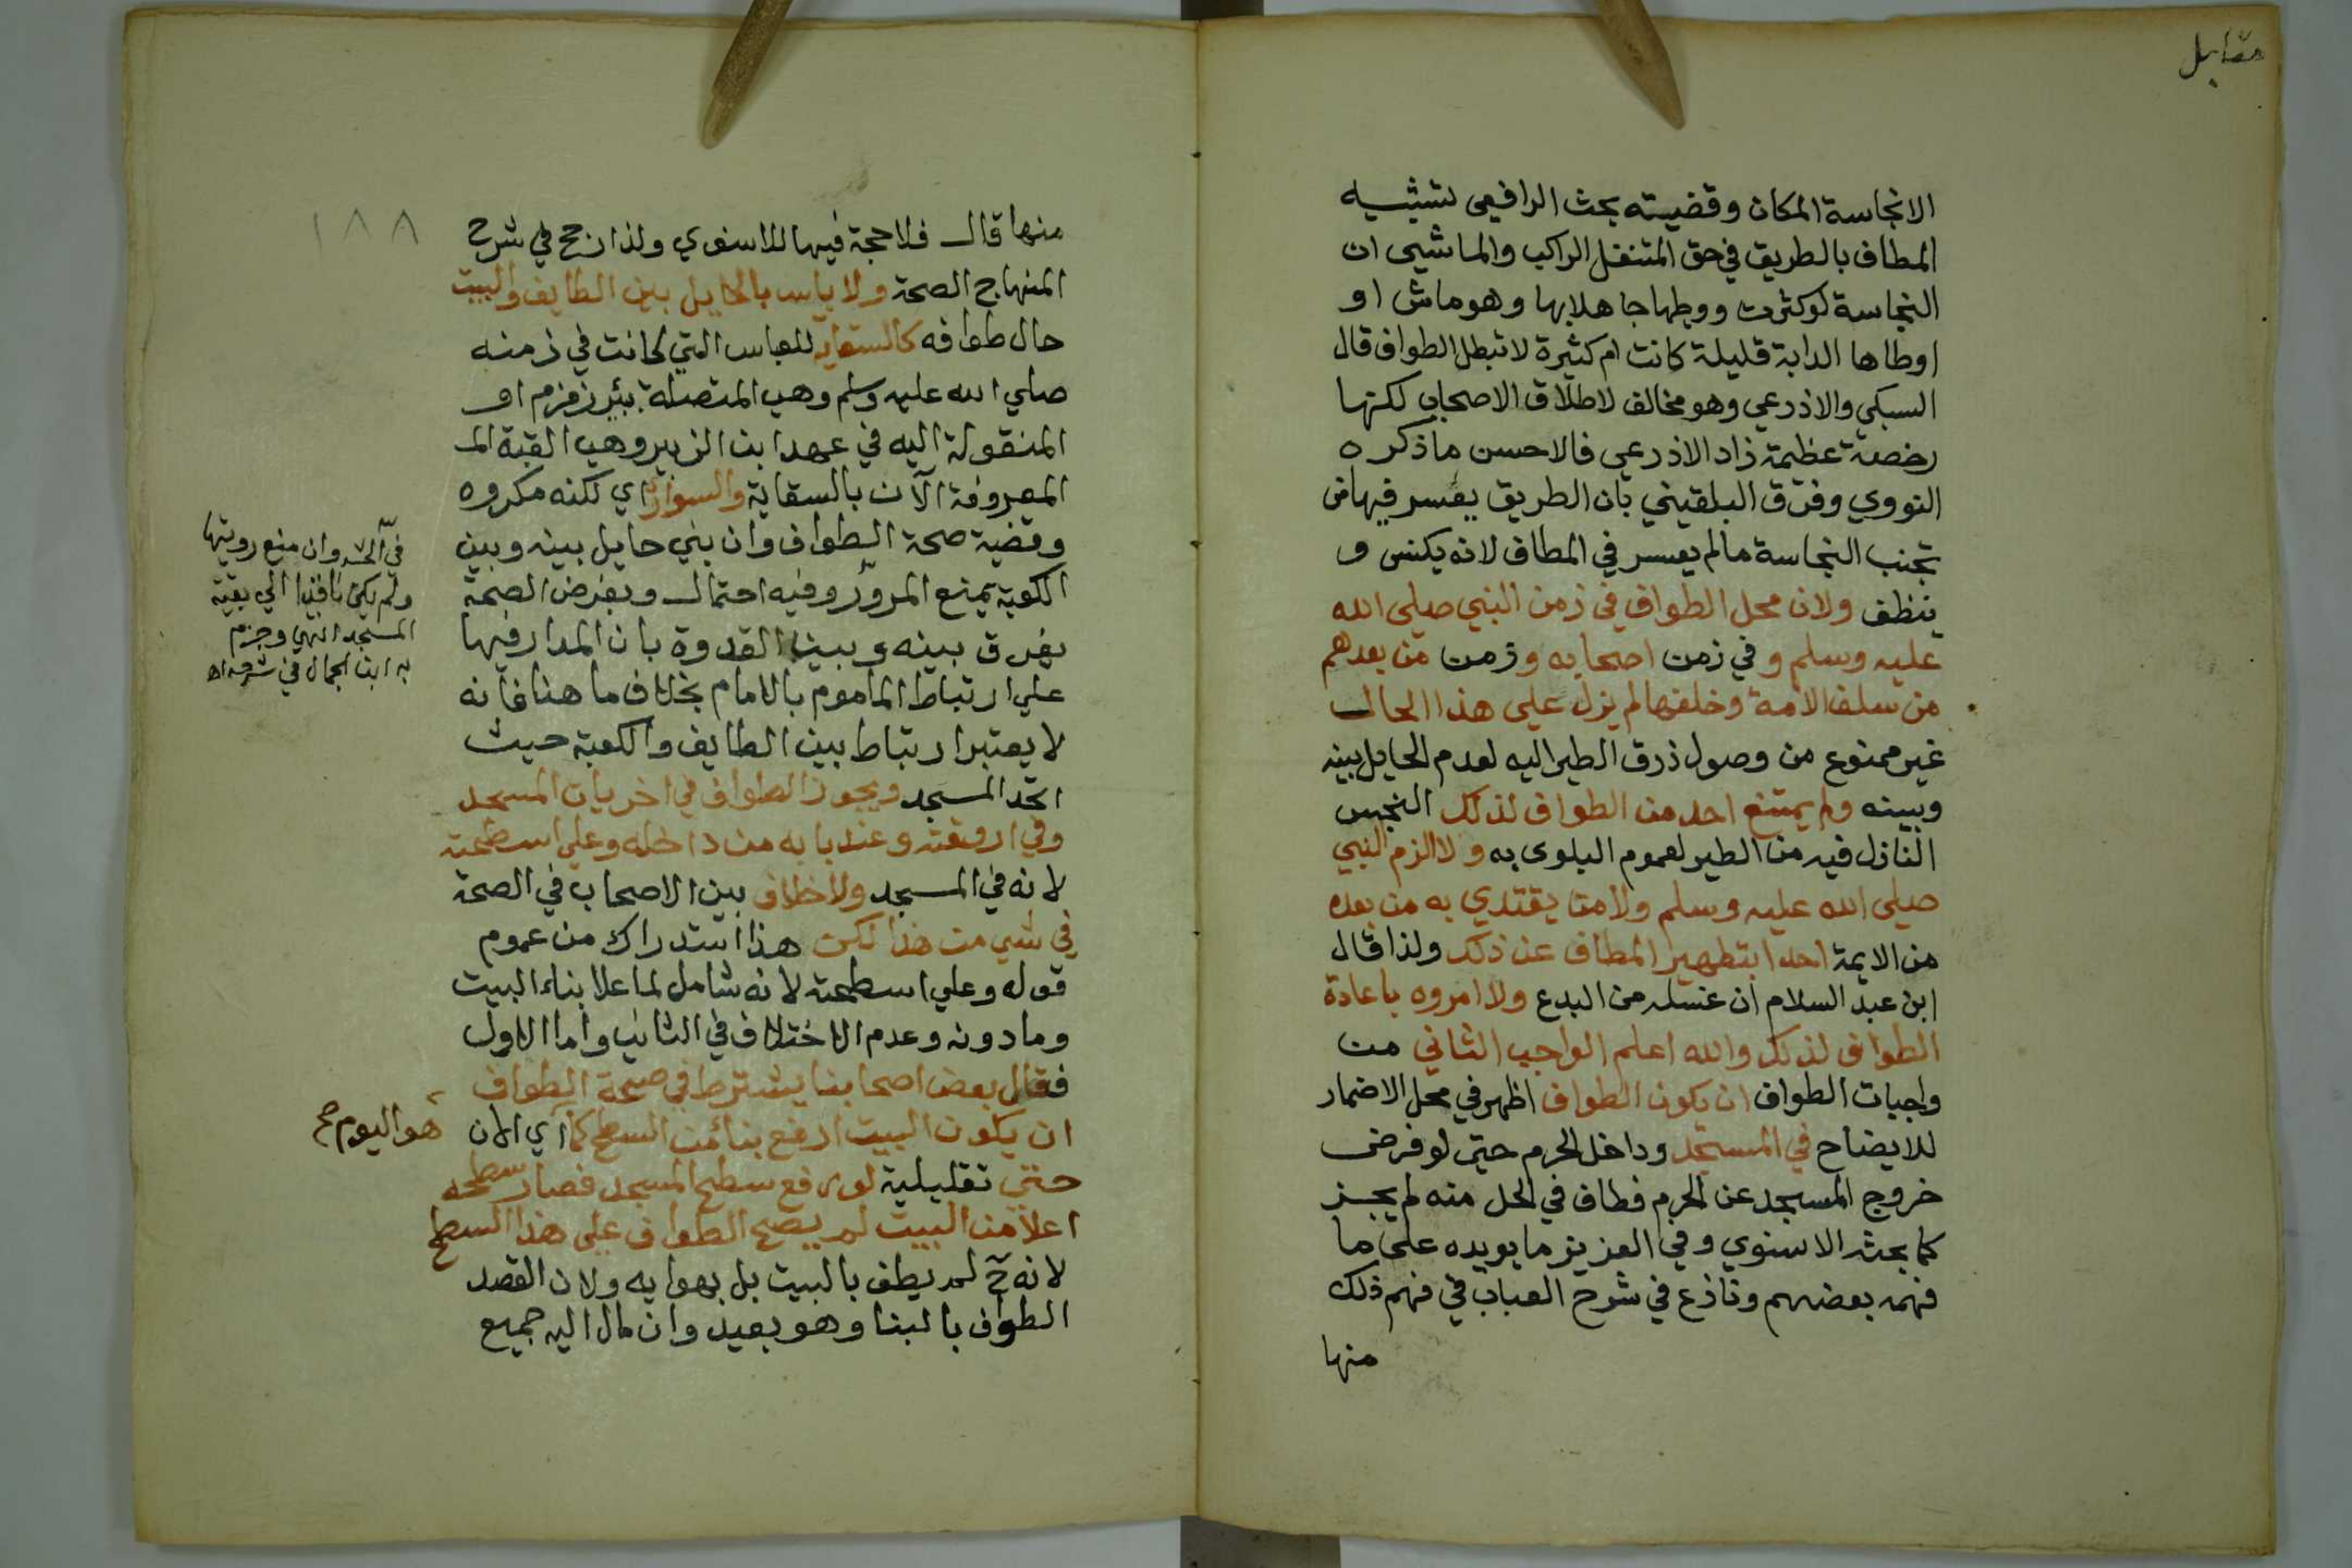 مقابل
الانجاسة المكان وقضيته بحث الرافعي تشبيه
المطاف بالطريق في حق المتنفل الراكب والماشي ان
النجاسة لو كثرت ووطها جاهلا بها وهو ماش او
اوطاها الدابة قليلة كانت ام كثيرة لا تبطل الطواف قال
السبكي والاذرعي وهو مخالف لاطلاق الاصحاب لكنها
رخصة عظيمة زاد الاذرعي فالاحسن ما ذكره
النووي وفرق البلقيني بان الطريق يعسر فيها من
تجنب النجاسة ما لم يعسر في المطاف لانه يكنس و
ينظف ولان محل الطواف في زمن النبي صلي الله
عليه وسلم و في زمن اصحابه وزمن من بعدهم
من سلف الامة وخلفها لم يزل علي هذا الحال
غير ممنوع من وصول ذرق الطير اليه لعدم الحايل بينه
وبينه ولم يمتنع احد من الطواف لذلك النجس
النازل فيه من الطير لعموم البلوى به ولا الزم النبي
صلي الله عليه وسلم ولا من يقتدي به من بعده
من الايمة احدا بتطهير المطاف عن ذلك ولذا قال
ابن عبد السلام ان غسله من البدع ولا امروه باعادة
الطواف لذلك والله اعلم الواجب الثاني من
واجبات الطواف ان يكون الطواف اظهر في محل الاضمار
للايضاح في المسجد وداخل الحرم حتي لو فرض
خروج المسجد عن الحرم فطاف في الحل منه لم يجز
كما بحثه الاسنوي وفي العزيز ما يويده علي ما
فهمه بعضهم ونازع في شرح العباب في فهم ذلك
منها
١٨٨
منها قال فلا حجة فيها للاسنوي ولذا رجح في شرح
المنهاج الصحة ولا باس بالحايل بين الطايف والبيت
حال طوافه كالسقاية للعباس التي كانت في زمنه
صلي الله عليه وسلم وهي المتصلة ببئر زمزم او
المنقولة اليه في عهد ابن الزبير وهي القبة المـ
المعروفة الآن بالسقاية والسواري اي لكنه مكروه
وقضية صحة الطواف وان بني حايل بينه وبين
الكعبة يمنع المرور وفيه احتمال وبفرض الصحة
يفرق بينه وبين القدوة بان المدار فيها
علي ارتباط الماموم بالامام بخلاف ما هنا فانه
لا يعتبر ارتباط بين الطايف والكعبة حيث
اتحد المسجد ويجوز الطواف في اخريات المسجد
وفي اروقته وعند بابه من داخله وعلي اسطحته
لانه في المسجد ولا خلاف بين الاصحاب في الصحة
في شي من هذا لكن هذا استدراك من عموم
قوله وعلي اسطحته لانه شامل لما علا بناء البيت
وما دونه وعدم الاختلاف في الثاني واما الاول
فقال بعض اصحابنا يشترط في صحة الطواف
ان يكون البيت ارفع بنا من السطح كما اي الان
حتي تعليلية لو رفع سطح المسجد فصار سطحه
اعلا من البيت لم يصح الطواف علي هذا السطح
لانه ح لم يطف بالبيت بل بهوايه ولان القصد
الطواف بالبنا وهو بعيد وان مال اليه جميع
وان منع رويتها
ولم يكن نافذا الي بقية
المسجد انتهي وجزم
به ابن الجمال في شرحه اه
هو اليوم صح